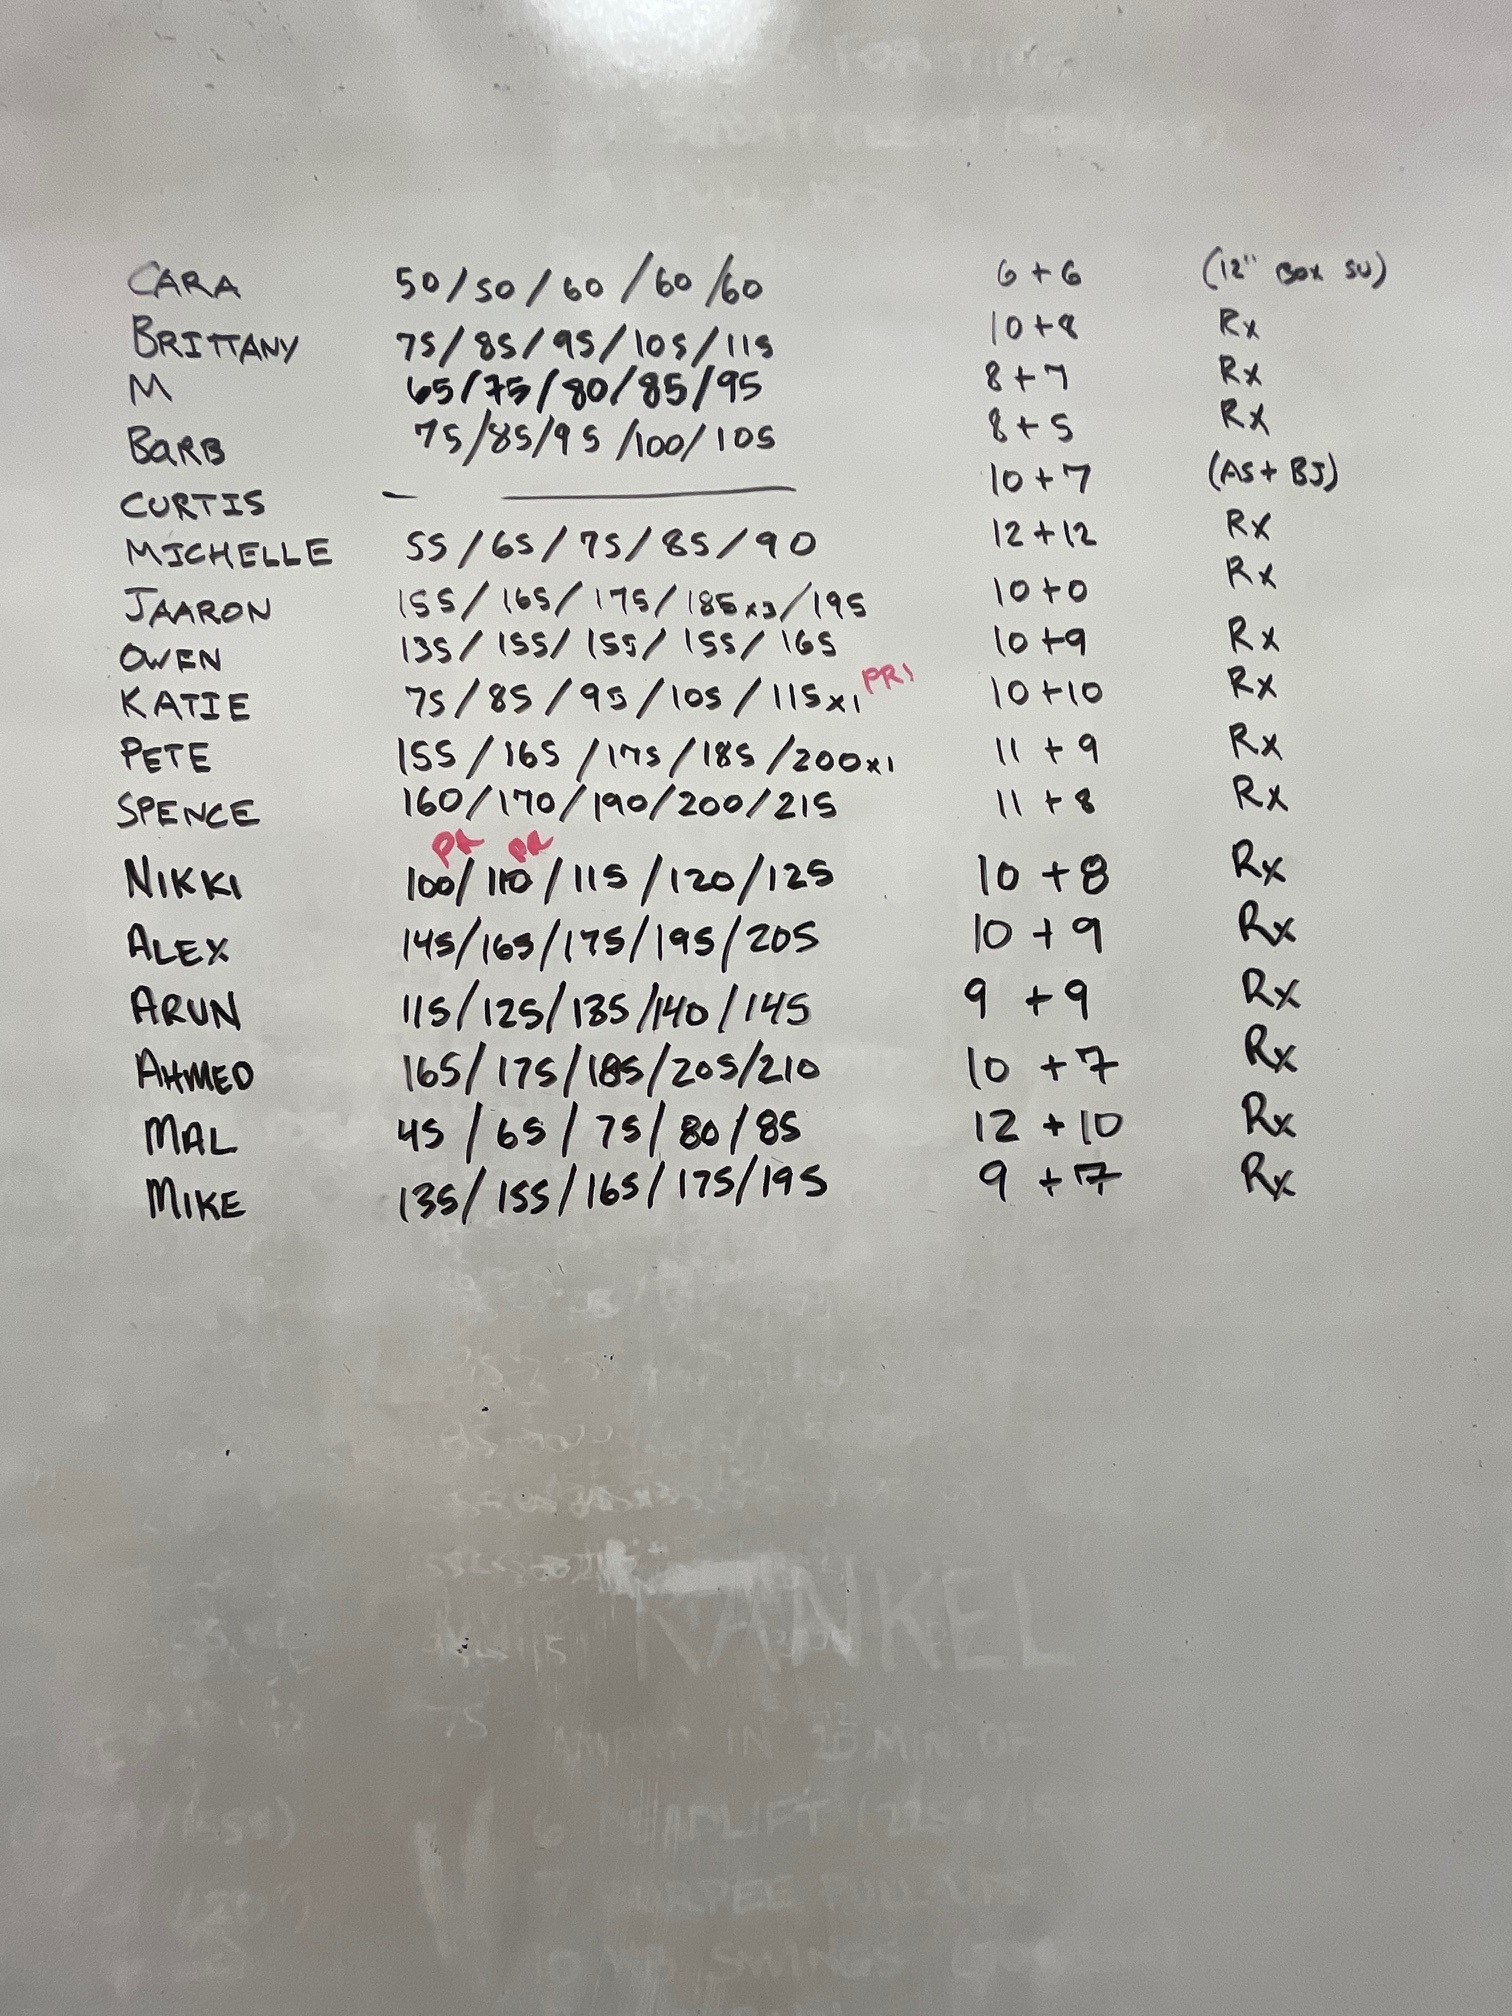 FOR TIME
CARA 50/50/60/60/60 6+6 (12" BOX SU)
BRITTANY 75/85/95/105/115 10+8 Rx
M 65/75/80/85/95 8+7 Rx
BARB 75/85/95/100/105 8+5 Rx
CURTIS — — 10+7 (AS+BJ)
MICHELLE 55/65/75/85/90 12+12 Rx
JAARON 155/165/175/185x3/195 10+0 Rx
OWEN 135/155/155/155/165 10+9 Rx
KATIE 75/85/95/105/115x1 PR! 10+10 Rx
PETE 155/165/175/185/200x1 11+9 Rx
SPENCE 160/170/190/200/215 11+8 Rx
PR PR
NIKKI 100/110/115/120/125 10+8 Rx
ALEX 145/165/175/195/205 10+9 Rx
ARUN 115/125/135/140/145 9+9 Rx
AHMED 165/175/185/205/210 10+7 Rx
MAL 45/65/75/80/85 12+10 Rx
MIKE 135/155/165/175/195 9+7 Rx
KANKEL
AMRAP IN 20 MIN. OF
6 DEADLIFT
7 BURPEE PULL-UPS
10 KB SWINGS